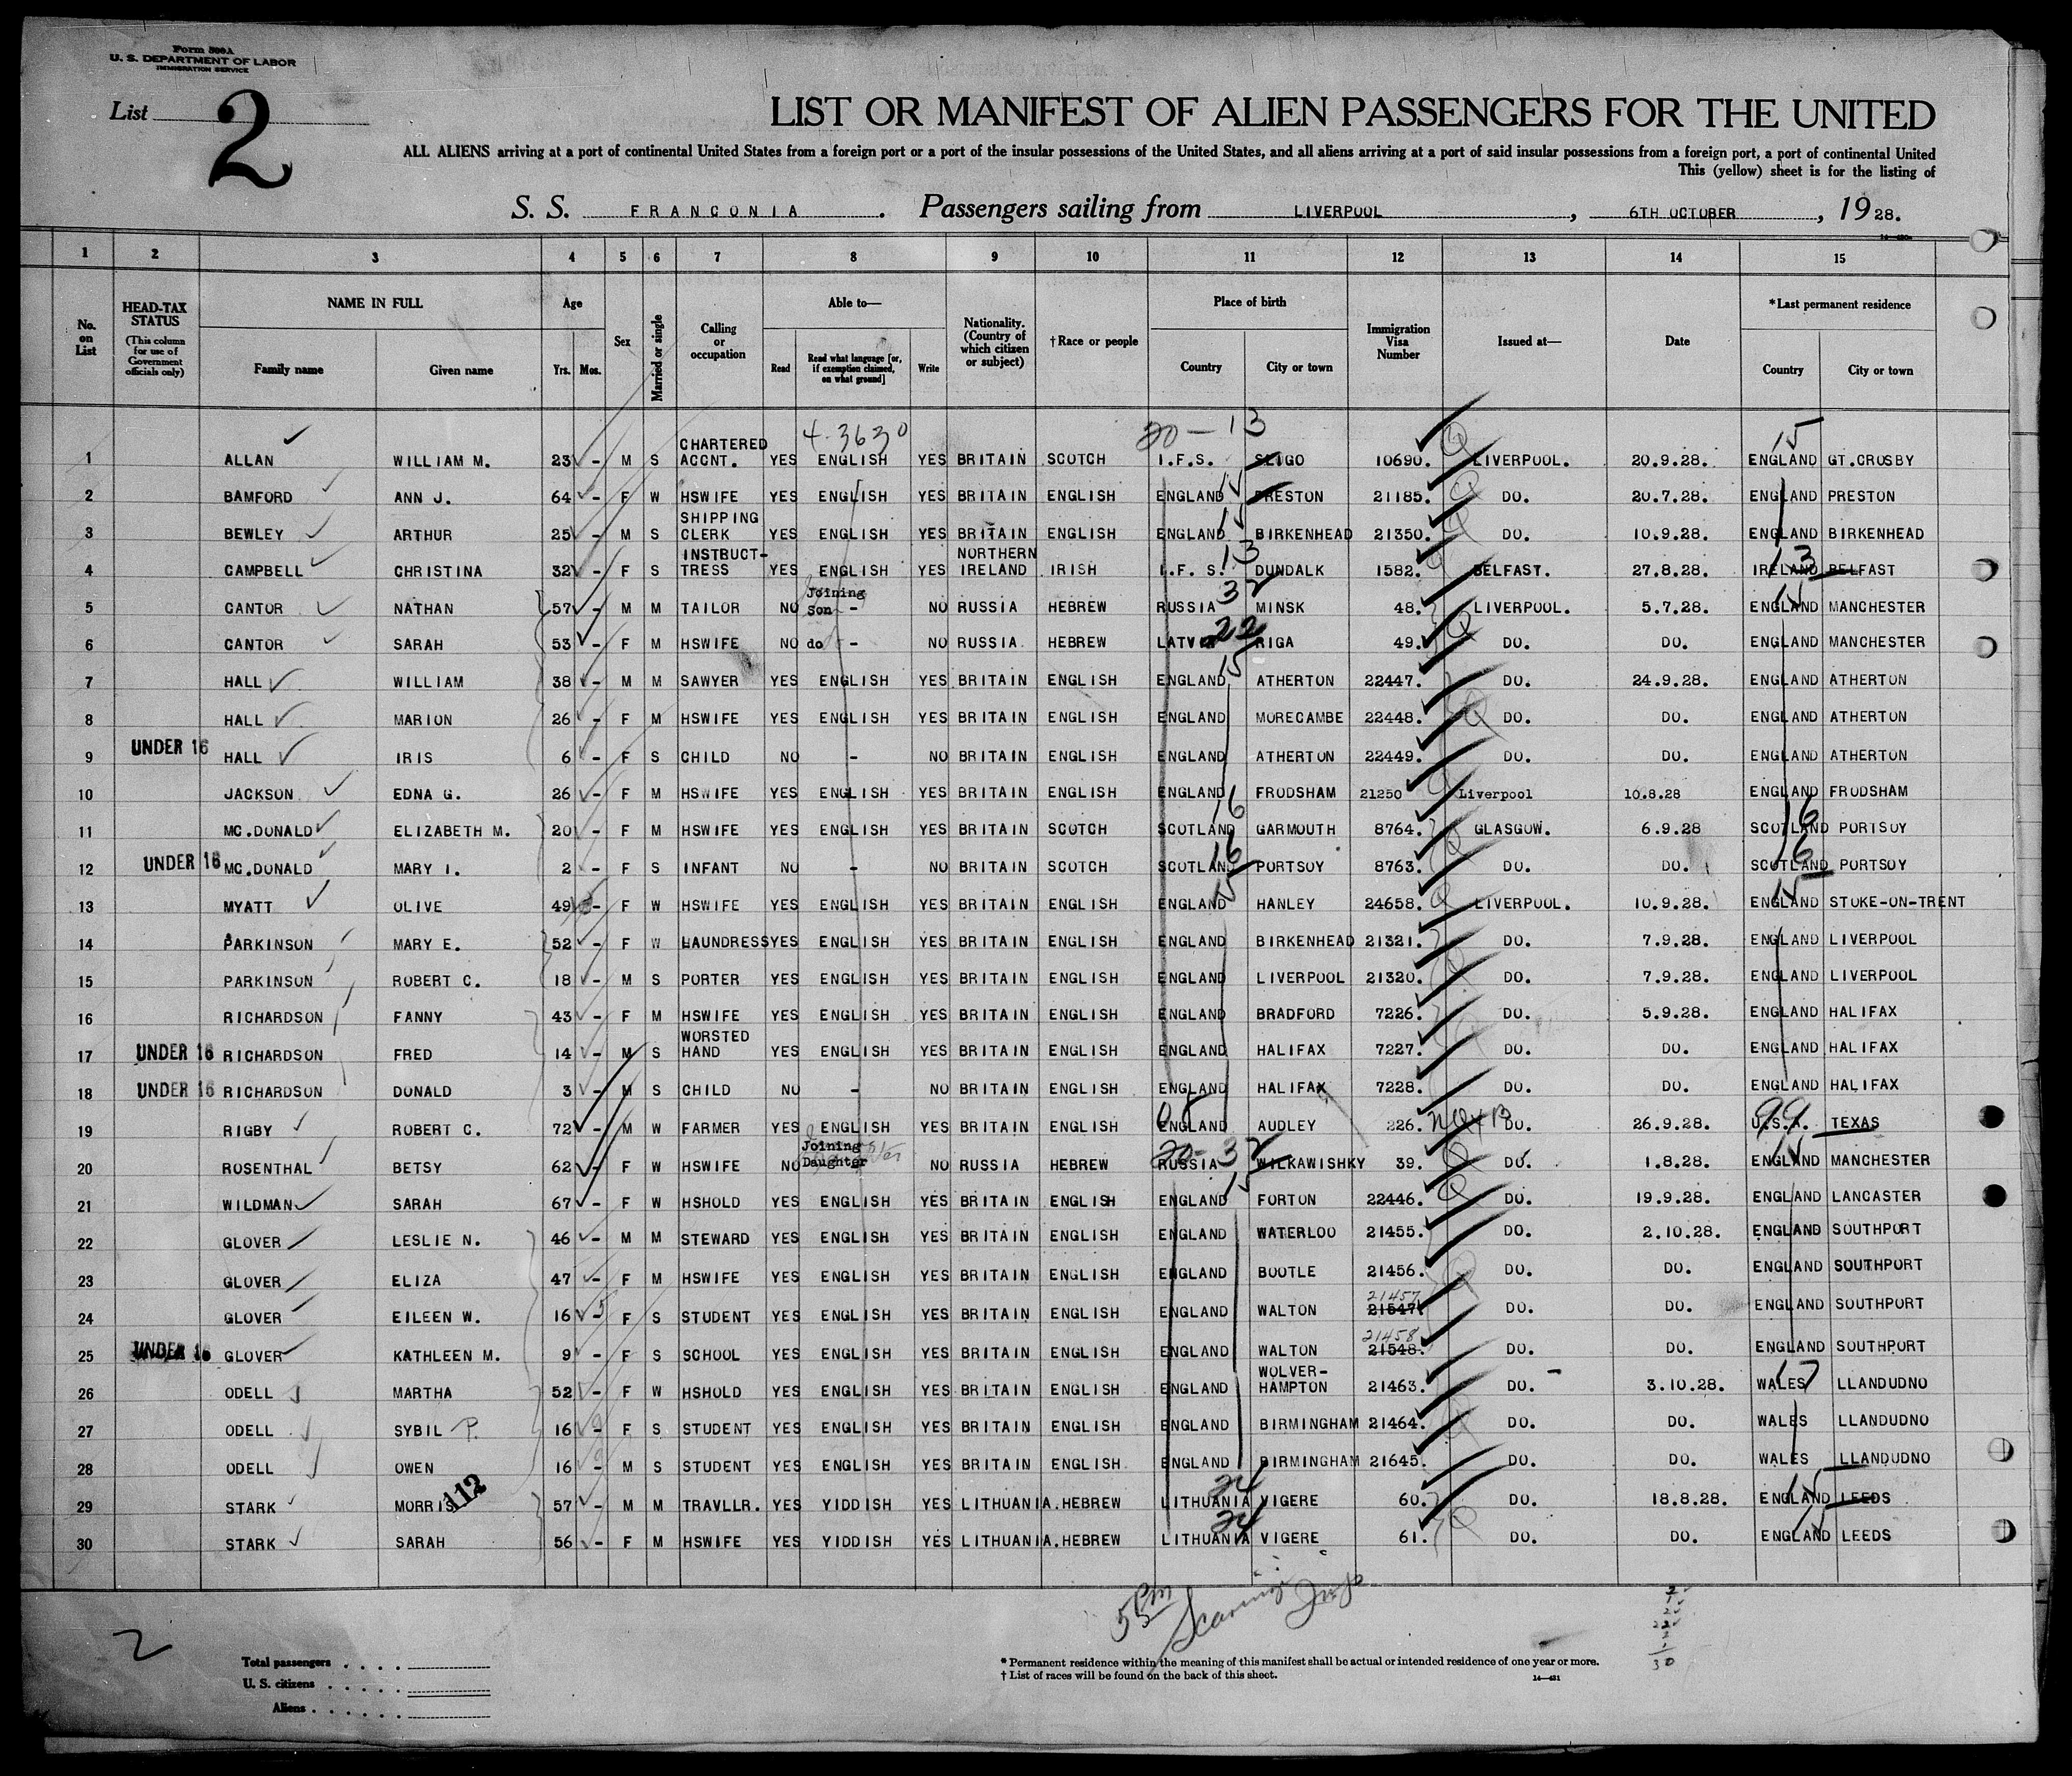 Form 500A
U. S. DEPARTMENT OF LABOR
IMMIGRATION SERVICE
List 2
LIST OR MANIFEST OF ALIEN PASSENGERS FOR THE UNITED
ALL ALIENS arriving at a port of continental United States from a foreign port or a port of the insular possessions of the United States, and all aliens arriving at a port of said insular possessions from a foreign port, a port of continental United
This (yellow) sheet is for the listing of
S. S. FRANCONIA . Passengers sailing from LIVERPOOL , 6TH OCTOBER , 19 28.
1 2 3 4 5 6 7 8 9 10 11 12 13 14 15
No. on List
HEAD-TAX STATUS (This column for use of Government officials only)
NAME IN FULL Family name Given name
Age Yrs. Mos.
Sex
Married or single
Calling or occupation
Able to— Read Read what language [or, if exemption claimed, on what ground] Write
Nationality. (Country of which citizen or subject)
†Race or people
Place of birth Country City or town
Immigration Visa Number
Issued at—
Date
*Last permanent residence Country City or town
4-3630 20-13 15
1 ALLAN WILLIAM M. 23 - M S CHARTERED ACCNT. YES ENGLISH YES BRITAIN SCOTCH I.F.S. SLIGO 10690. LIVERPOOL. 20.9.28. ENGLAND GT.CROSBY
2 BAMFORD ANN J. 64 - F W HSWIFE YES ENGLISH YES BRITAIN ENGLISH ENGLAND 15 PRESTON 21185. DO. 20.7.28. ENGLAND PRESTON
3 BEWLEY ARTHUR 25 - M S SHIPPING CLERK YES ENGLISH YES BRITAIN ENGLISH ENGLAND 15 BIRKENHEAD 21350. DO. 10.9.28. ENGLAND BIRKENHEAD
4 CAMPBELL CHRISTINA 32 - F S INSTRUCT-TRESS YES ENGLISH YES NORTHERN IRELAND IRISH I.F.S. 13 DUNDALK 1582. BELFAST. 27.8.28. IRELAND 13 BELFAST
5 CANTOR NATHAN 57 - M M TAILOR NO Joining Son - NO RUSSIA HEBREW RUSSIA 32 MINSK 48. LIVERPOOL. 5.7.28. ENGLAND 15 MANCHESTER
6 CANTOR SARAH 53 - F M HSWIFE NO do - NO RUSSIA HEBREW LATVIA 22 RIGA 49. DO. DO. ENGLAND MANCHESTER
7 HALL WILLIAM 38 - M M SAWYER YES ENGLISH YES BRITAIN ENGLISH ENGLAND 15 ATHERTON 22447. DO. 24.9.28. ENGLAND ATHERTON
8 HALL MARION 26 - F M HSWIFE YES ENGLISH YES BRITAIN ENGLISH ENGLAND MORECAMBE 22448. DO. DO. ENGLAND ATHERTON
9 UNDER 16 HALL IRIS 6 - F S CHILD NO - NO BRITAIN ENGLISH ENGLAND ATHERTON 22449. DO. DO. ENGLAND ATHERTON
10 JACKSON EDNA G. 26 - F M HSWIFE YES ENGLISH YES BRITAIN ENGLISH ENGLAND FRODSHAM 21250 Liverpool 10.8.28 ENGLAND FRODSHAM
11 MC.DONALD ELIZABETH M. 20 - F M HSWIFE YES ENGLISH YES BRITAIN SCOTCH SCOTLAND 16 GARMOUTH 8764. GLASGOW. 6.9.28 SCOTLAND 16 PORTSOY
12 UNDER 16 MC.DONALD MARY I. 2 - F S INFANT NO - NO BRITAIN SCOTCH SCOTLAND 16 PORTSOY 8763. DO. DO. SCOTLAND 16 PORTSOY
13 MYATT OLIVE 49 - F W HSWIFE YES ENGLISH YES BRITAIN ENGLISH ENGLAND 15 HANLEY 24658. LIVERPOOL. 10.9.28. ENGLAND 15 STOKE-ON-TRENT
14 PARKINSON MARY E. 52 - F W LAUNDRESS YES ENGLISH YES BRITAIN ENGLISH ENGLAND BIRKENHEAD 21321. DO. 7.9.28. ENGLAND LIVERPOOL
15 PARKINSON ROBERT C. 18 - M S PORTER YES ENGLISH YES BRITAIN ENGLISH ENGLAND LIVERPOOL 21320. DO. 7.9.28. ENGLAND LIVERPOOL
16 RICHARDSON FANNY 43 - F M HSWIFE YES ENGLISH YES BRITAIN ENGLISH ENGLAND BRADFORD 7226. DO. 5.9.28. ENGLAND HALIFAX
17 UNDER 16 RICHARDSON FRED 14 - M S WORSTED HAND YES ENGLISH YES BRITAIN ENGLISH ENGLAND HALIFAX 7227. DO. DO. ENGLAND HALIFAX
18 UNDER 16 RICHARDSON DONALD 3 - M S CHILD NO - NO BRITAIN ENGLISH ENGLAND HALIFAX 7228. DO. DO. ENGLAND HALIFAX
19 RIGBY ROBERT C. 72 - M W FARMER YES ENGLISH YES BRITAIN ENGLISH ENGLAND AUDLEY 226. DO. 26.9.28. U.S.A. 99 TEXAS
20 ROSENTHAL BETSY 62 - F W HSWIFE NO Joining Daughter NO RUSSIA HEBREW RUSSIA 20-32 WILKAWISHKY 39. DO. 1.8.28. ENGLAND 15 MANCHESTER
21 WILDMAN SARAH 67 - F W HSHOLD YES ENGLISH YES BRITAIN ENGLISH ENGLAND 15 FORTON 22446. DO. 19.9.28. ENGLAND LANCASTER
22 GLOVER LESLIE N. 46 - M M STEWARD YES ENGLISH YES BRITAIN ENGLISH ENGLAND WATERLOO 21455. DO. 2.10.28. ENGLAND SOUTHPORT
23 GLOVER ELIZA 47 - F M HSWIFE YES ENGLISH YES BRITAIN ENGLISH ENGLAND BOOTLE 21456. DO. DO. ENGLAND SOUTHPORT
24 GLOVER EILEEN W. 16 5 F S STUDENT YES ENGLISH YES BRITAIN ENGLISH ENGLAND WALTON 21457 21547. DO. DO. ENGLAND SOUTHPORT
25 UNDER 16 GLOVER KATHLEEN M. 9 - F S SCHOOL YES ENGLISH YES BRITAIN ENGLISH ENGLAND WALTON 21458 21548. DO. DO. ENGLAND SOUTHPORT
26 ODELL MARTHA 52 - F W HSHOLD YES ENGLISH YES BRITAIN ENGLISH ENGLAND WOLVER-HAMPTON 21463. DO. 3.10.28. WALES 17 LLANDUDNO
27 ODELL SYBIL P. 16 - F S STUDENT YES ENGLISH YES BRITAIN ENGLISH ENGLAND BIRMINGHAM 21464. DO. DO. WALES LLANDUDNO
28 ODELL OWEN 16 - M S STUDENT YES ENGLISH YES BRITAIN ENGLISH ENGLAND BIRMINGHAM 21645. DO. DO. WALES LLANDUDNO
29 STARK MORRIS 112 57 - M M TRAVLLR. YES YIDDISH YES LITHUANIA. HEBREW LITHUANIA 24 VIGERE 60. DO. 18.8.28. ENGLAND 15 LEEDS
30 STARK SARAH 56 - F M HSWIFE YES YIDDISH YES LITHUANIA. HEBREW LITHUANIA 24 VIGERE 61. DO. DO. ENGLAND 15 LEEDS
2
Total passengers . . . .
U. S. citizens . . . . .
Aliens . . . . . .
* Permanent residence within the meaning of this manifest shall be actual or intended residence of one year or more.
† List of races will be found on the back of this sheet.
14—431
30